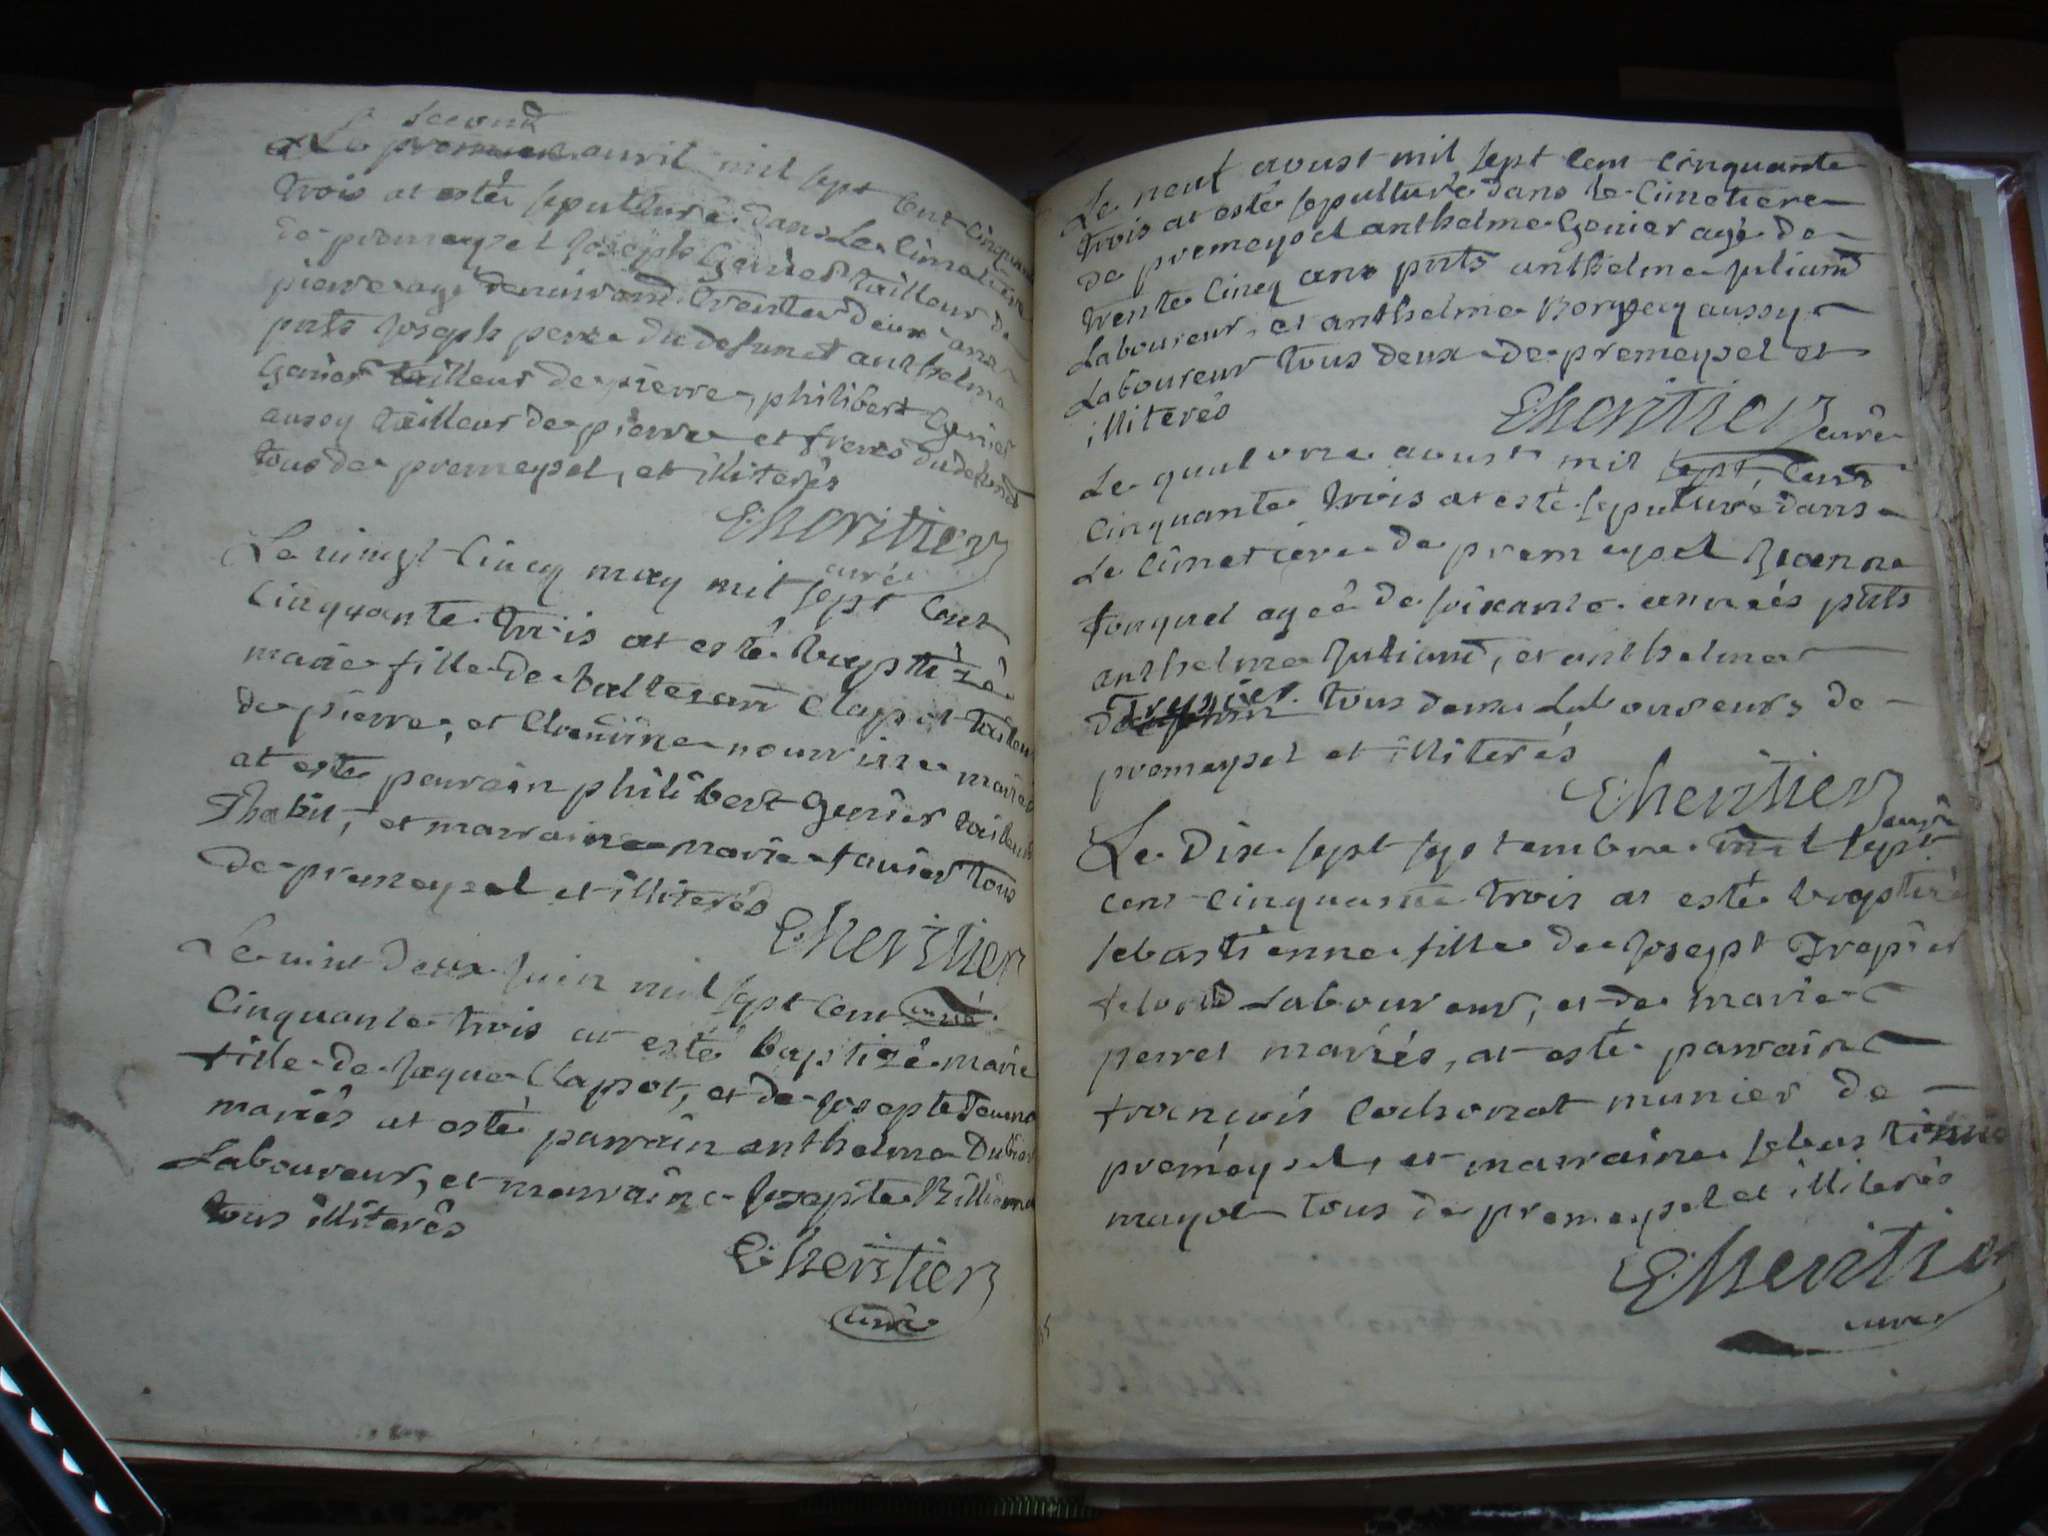 second
Le premier avril mil sept cent cinquante
trois at estée sepulturé dans Le Cimetiere
de premeyzel Joseph Genier tailleur de
pierre agé denuiron trente deux ans
pnts Joseph pere du defunct anthelme
Genier tailleur de pierre, philibert Genier
aussy tailleur de pierre et freres du defunct
tous de premeyzel, et illiterés
E. heritier
curé
Le vingt Cincq may mil sept Cent
Cinquante trois at esté baptizé
marie fille de baltesard Clapot tailleur
de pierre, et Claudine nourrisse mariés
at esté parrain philibert Genier tailleur
Dhabit, et marraine marie fauier tous
de premeyzel et illiterés
E. heritier
curé
Le vint deux Juin mil sept Cent
Cinquante trois at esté baptizé marie
fille de Jaque Clapot, et de Josepte
mariés at esté parrain anthelme
Laboureur, et marraine Josepte
tous illiterés
E. heritier
curé
Le neuf avoust mil sept Cent Cinquante
trois at esté sepulturé dans le Cimetiere
de premeyzel anthelme Genier agé de
trente Cincq ans pnts anthelme Juliand
Laboureur, et anthelme aussy
Laboureur tous deux de premeyzel et
illiterés
E heritier curé
Le quatorze avoust mil sept Cent
Cinquante trois at esté sepulturé dans
Le Cimetiere de premeyzel Jeanne
fouquet ageé de soixante anneés pnts
anthelme Juliand, et anthelme
Trepier tous deux Laboureurs de
premeyzel et illiterés
E heritier
curé
Le Dix sept septembre mil sept
cent cinquante trois at esté baptizé
sebastienne fille de Josept Trepier
Laboureur, et de marie
perret mariés, at esté parrain
françois Cochonat munier de
premeyzel, et marraine sebastienne
mayot tous de premeyzel et illiterés
E heritier
curé